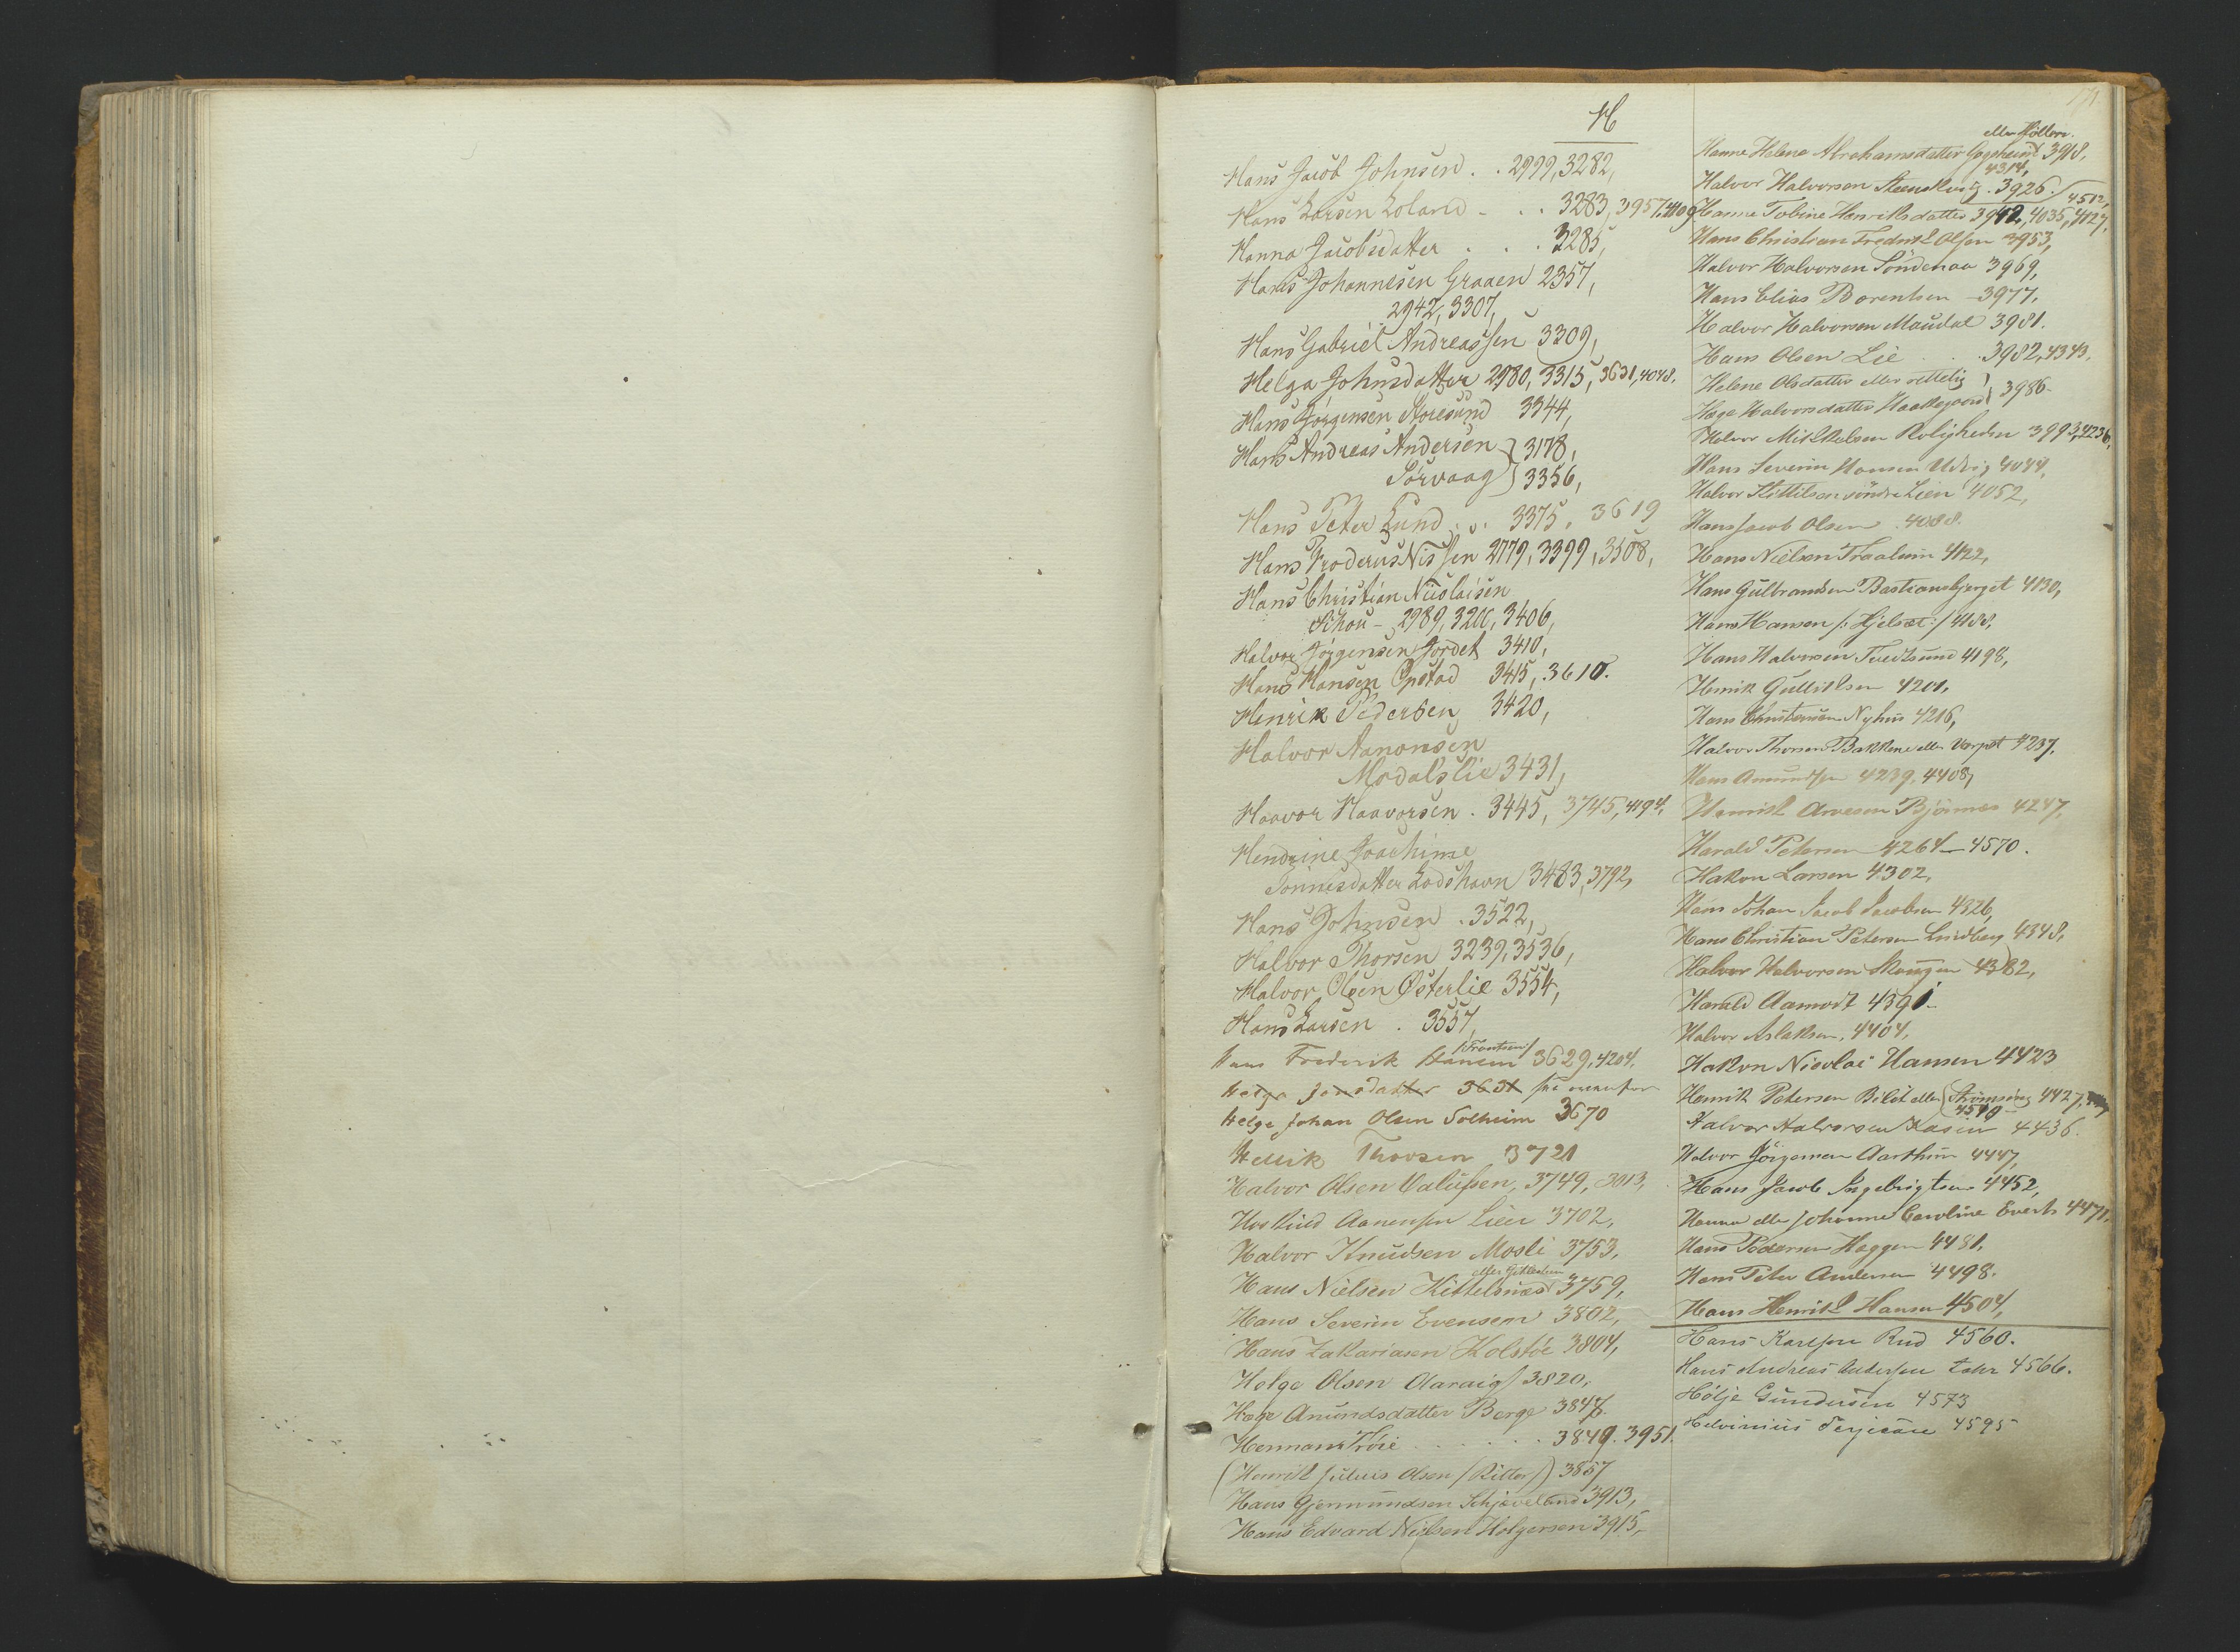 H
Hans Jacob Johnsen . . 2999, 3282,
Hans Larsen Loland . . . 3283, 3957. 4109
Hanna Jacobsdatter . . . 3285,
Hans Johannesen Graaen 2357,
2942, 3307,
Hans Gabriel Andreassen 3309,
Helga Johnsdatter 2980, 3315, 3631, 4048.
Hans Jörgensen Noresund 3344,
Hans Andreas Andersen } 3178,
Sörvaag } 3356,
Hans Peter Lund . . 3375, 3619
Hans Proderus Nissen 2779, 3399, 3508,
Hans Christian Nicolaisen
Schou - 2989, 3200, 3406,
Halvor Jörgensen Jordet 3410,
Hans Hansen Opstad 3415, 3610.
Henrik Pedersen 3420,
Halvor Aanonsen
Modalslie 3431,
Haavor Haavorsen . 3445, 3745, 4194,
Hendrine Joachime
Tönnesdatter Lodshavn 3483, 3792,
Hans Johnsen . 3522,
Halvor Thorsen 3239, 3536,
Halvor Olsen Østerlie 3554,
Hans Larsen . 3557,
Hans Frederik Hansen /Frantsen/ 3629, 4204.
Helga Jonsdatter 3631
Helge Johan Olsen Solheim 3670
Hellik Thorsen 3721
Halvor Olsen 3749, 3013,
Aanensen Lien 3702,
Halvor Knudsen Mosli 3753,
Hans Nielsen Kittelsnæs eller 3759,
Hans Severin Evensen 3802,
Hans Zakariasen Kolstöe 3804,
Helge Olsen Aaraig 3820,
Hæge Anundsdatter Berge 3847.
Hermans Tröie . . . . . 3849. 3951.
(Henrik Julius Olsen /Ritter/) 3857
Hans Gjermundsen Schjæveland 3913,
Hans Edvard Nielsen Holgersen 3915,
eller Höllen.
Hanne Helene Abrahamsdatter 3918,
4314,
Halvor Halvorsen 3926.
4512,
Hanne Tobine Henriksdatter 3942, 4035, 4127,
Hans Christian Fredrik Olsen 3953,
Halvor Halvorsen Söndenaa 3969,
Hans Elias Børentsen 3977,
Halvor Halvorsen Maudal 3981.
Hans Olsen Lie . . . 3982, 4343.
Helene Olsdatter eller rettelig }
Hæge Halvorsdatter Haakegaard } 3986.
Halvor Mikkelsen Roligheden 3993, 4236,
Hans Severin Hansen Udvig 4044,
Halvor Kittilsen söndre Lien 4052,
Hans Jacob Olsen . 4088.
Hans Nielsen Traaluin 4122,
Hans Gulbrandsen Bastiansbjerget 4130,
Hans Hansen /: Hjelset :/ 4188,
Hans Halvorsen Tvedtsund 4198,
Henrik Gullikksen 4201,
Hans Christensen Nyhus 4216,
Halvor Thorsen Bakkene eller Varpet 4237.
Hans Amundsen 4239, 4408,
Henrik Arvesen Björnnes 4247,
Harald Petersen 4264 - 4570.
Hakon Larsen 4302,
Hans Johan Jacob Jacobsen 4326,
Hans Christian Petersen Lindberg 4348,
Halvor Halvorsen Skougen 4382,
Harald Aamodt 4391.
Halvor Aslaksen, 4404.
Hakon Nicolai Hansen 4423
Henrik Petersen eller 4427,
4510
Halvor Halvorsen Aasen 4436.
Halvor Jörgensen Aarthun 4447,
Hans Jacob Ingebrigtsen 4452,
Hanna eller Johanne Caroline Everts 4471,
Hans Pedersen Haggen 4481,
Hans Peter Andersen 4498.
Hans Henrik Hansen 4504,
Hans Karlsen Rud 4560.
Hans Andreas Andersen 4566.
Hölje Gundersen 4573
Helvinius 4595